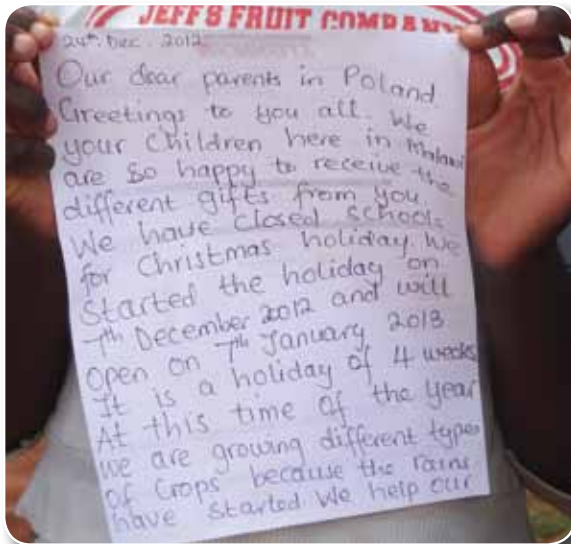 JEFF'S FRUIT COMPANY
24th. Dec. 2012
Our dear parents in Poland
Greetings to you all. We
your Children here in Malawi
are so happy to receive the
different gifts from you
We have closed schools
for Christmas holiday. We
started the holiday on
7th December 2012 and will
Open on 7th January 2013
It is a holiday of 4 weeks
At this time of the year
we are growing different types
of Crops because the rains
have started. We help our